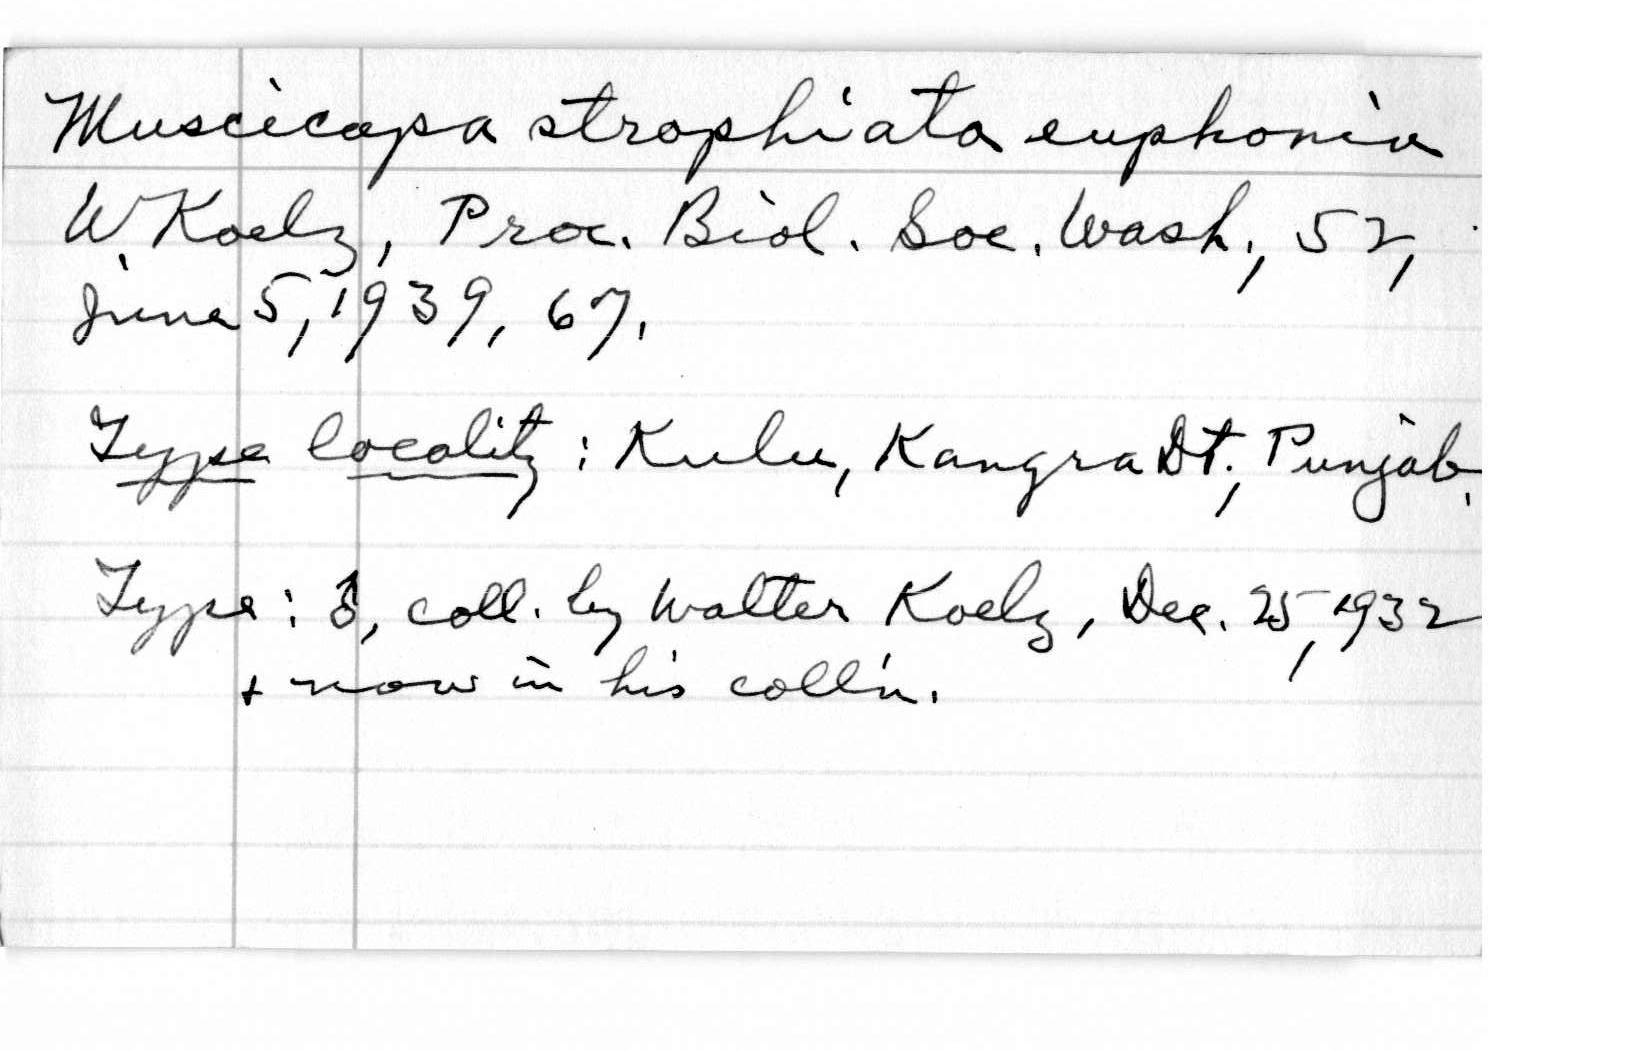 Muscicapa strophiata euphonia
W. Koelz, Proc. Biol. Soc. Wash., 52,
June 5, 1939, 67.
Type locality: Kulu, Kangra Dt., Punjab.
Type: ♂, coll. by Walter Koelz, Dec. 25, 1932
+ now in his coll'n.